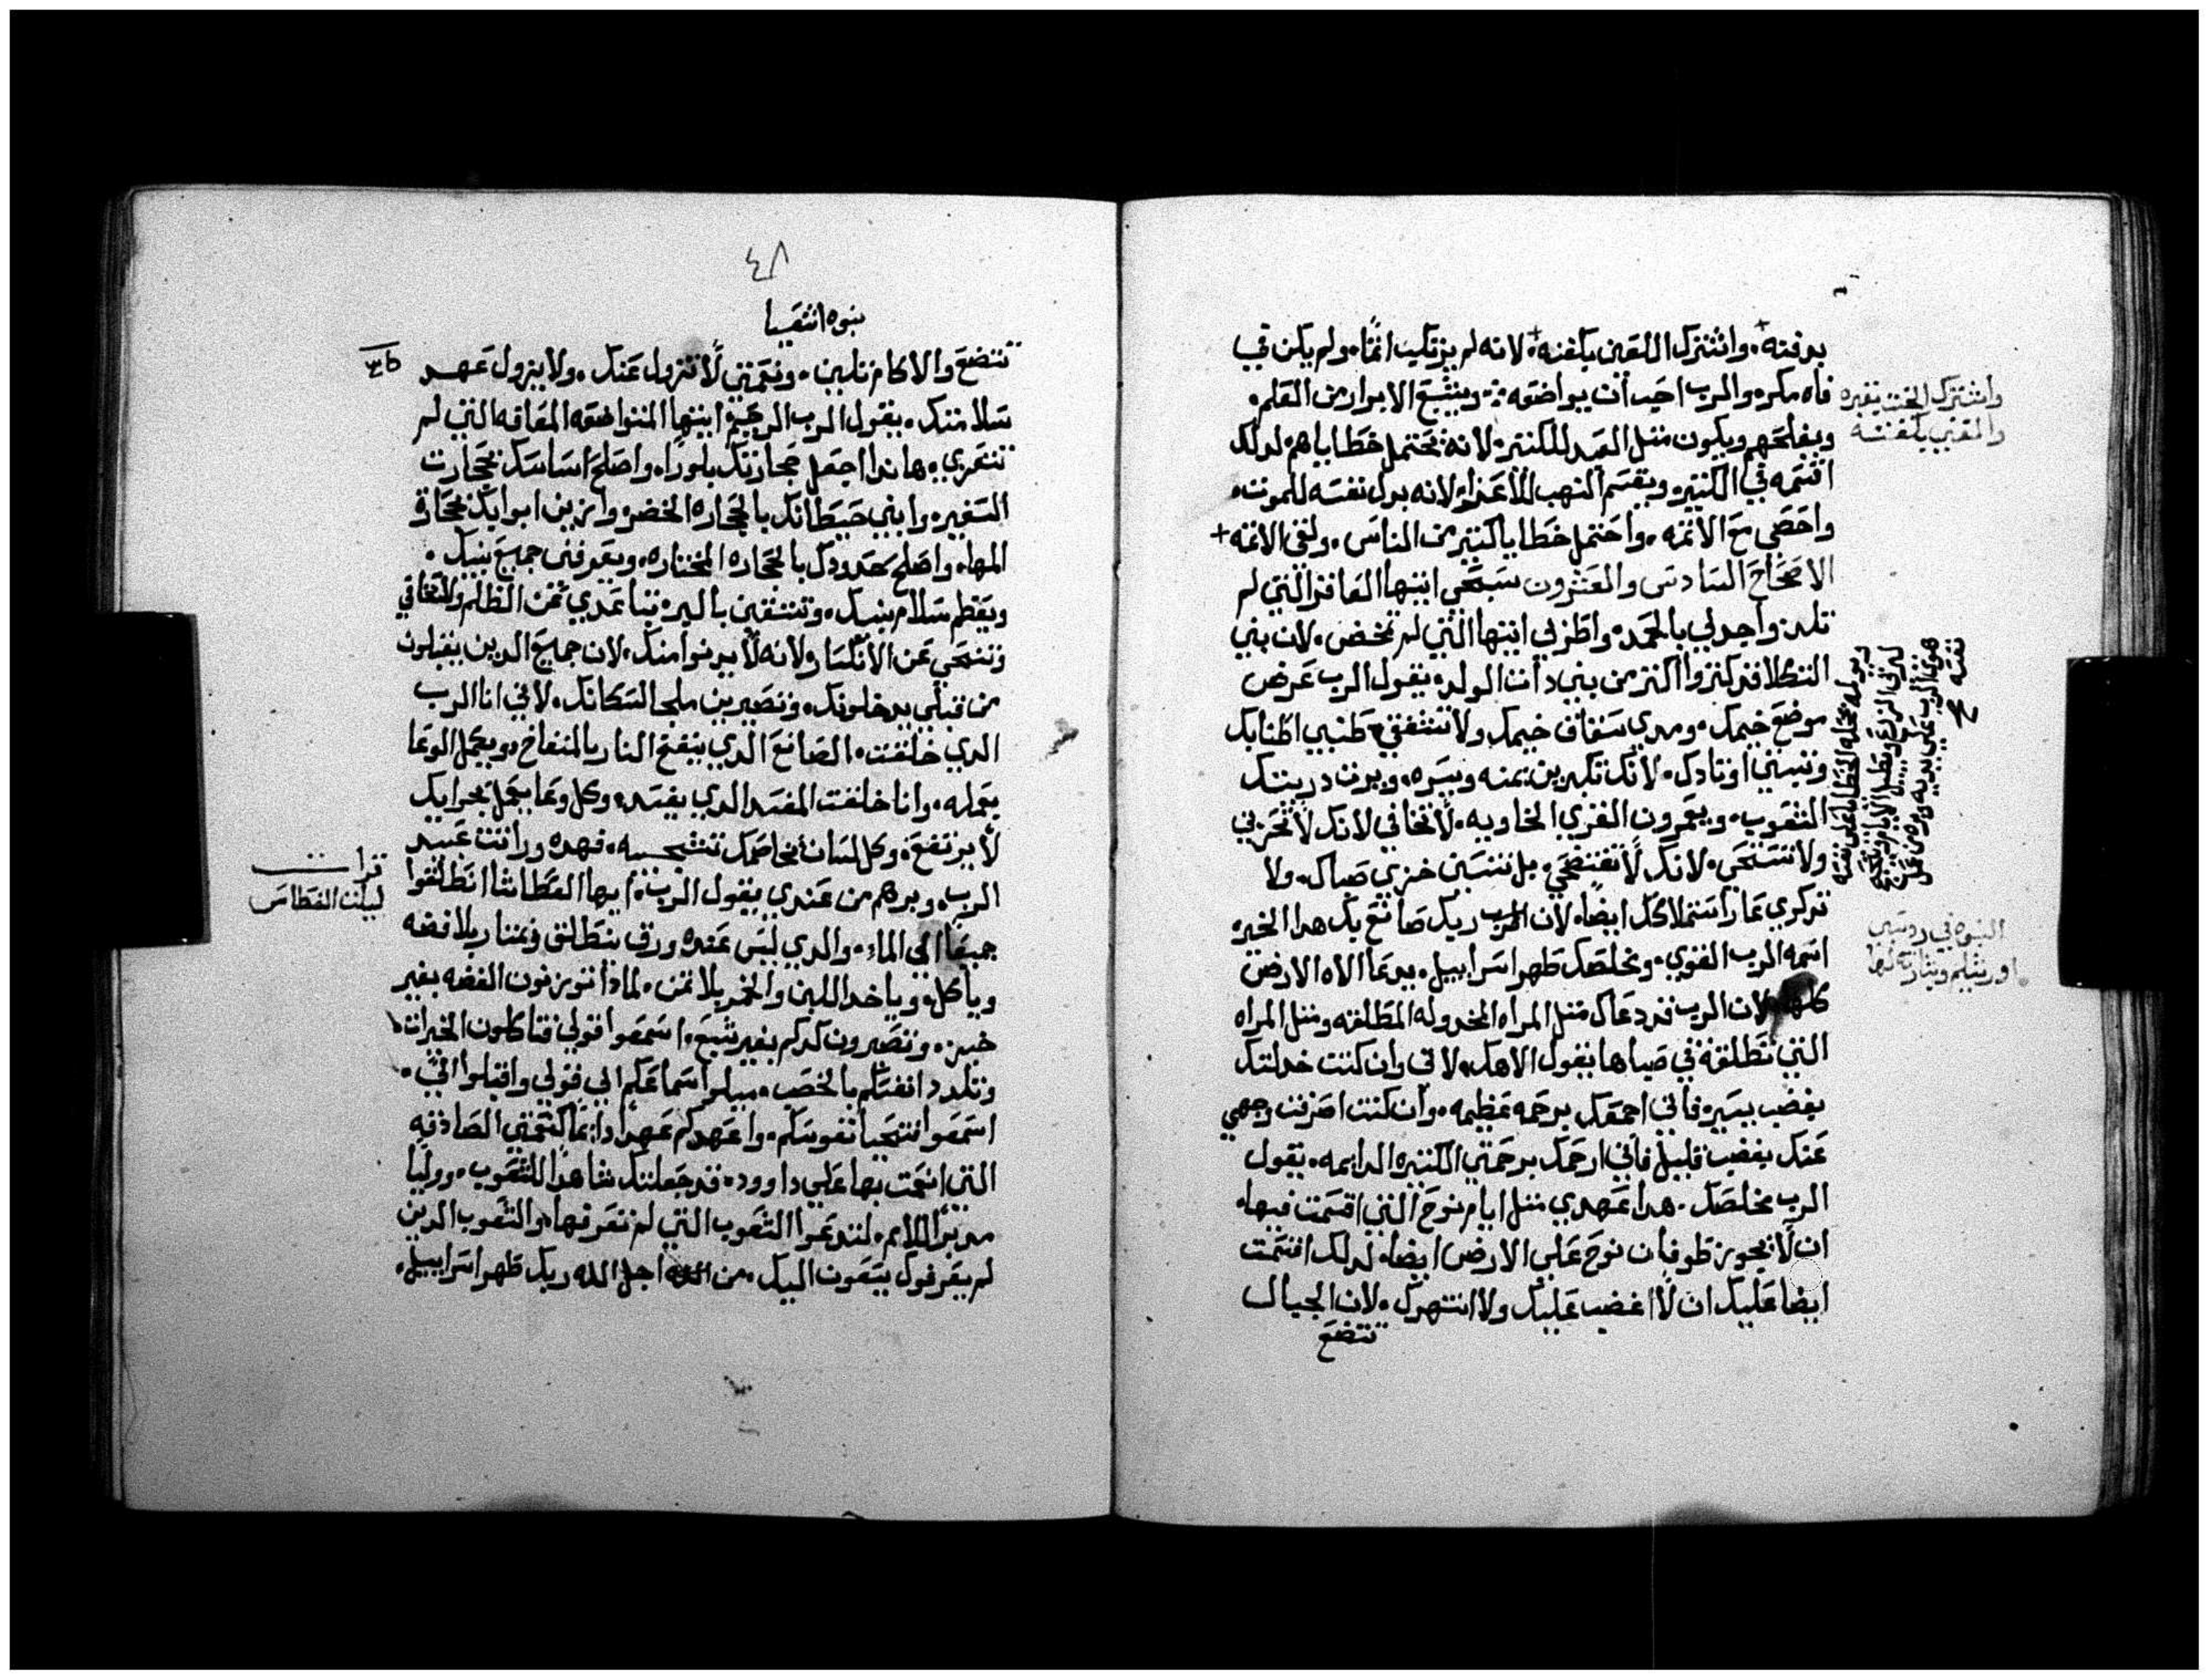 بدفنه. واشترك اللعين بكفنه. لانه لم يرتكب اثما. ولم يكن في
فاه مكر. والرب احب ان يواضعه. وينتبع الابرار من القلم.
ويفلحهم ويكون مثل العبد للكثير. لانه يحتمل خطاياهم لدلك
اقسمه في الكثير. ويقسم النهب للاعزا. لانه بدل نفسه للموت.
واحصي مع الاثمه. واحتمل خطايا كثير من الناس. ولقي الاثمه +
الاصحاح السادس والعشرون سبحي ايتها العاقر التي لم
تلد. واجدلي بالحمد. واطزلي ايتها التي لم تمخض. لان بني
التكلا قد كثروا اكثر من بني دات الولد. يقول الرب عرضي
موضع خيمك. ومدي سفاف خيمك ولا تشفقي. طنبي اطنابك
وتبتي اوتادك. لانك تكبرين يمنه ويسره. ويرث دريتك
الشعوب. ويعمرون القري الخاويه. لا تخافي لانك لا تخزني
ولا تستحي. لانك لا تفتضحي. بل تنسين خزي صباك. ولا
تدكري عار ارتملاكك ايضا. لان الرب ربك صانع بك هدا الخير.
اسمه الرب القوي. ومخلصك طهر اسراييل. يدعا الاه الارض
كلها. لان الرب قد دعاك مثل المراه المخدوله المطلقه ومثل المراه
التي تطلقه في صباها يقول الاهك. لاني وان كنت خدلتك
بغضب يسير. فاني اجمعك برحمه عظيمه. وان كنت اصرفت وجهي
عنك بغضب قليل فاني ارحمك برحمتي الكثيره الدايمه. يقول
الرب مخلصك. هدا عهدي مثل ايام نوح التي اقسمت فيها.
ان لا يجوز طوفان نوح علي الارض ايضا. لدلك اقسمت
ايضا عليك ان لا اغضب عليك ولا انتهرك. لان الجبال
تتضع
واشترك الخبث بقبره
والمغني بكفنه
النبوه في روسي
اورشليم وبشارته لها
٤٨
نبوه اشعيا
تتضع والاكام تلين. ونعمتي لا تزول عنك. ولا يزول عهد
سلامتك. يقول الرب الرحيم ايتها المتواضعه المعاقه التي لم
تتعزي. هاندا اجعل حجارتك بلورا. واصلح اساسك بحجارت
السفير. وابني حيطانك بالحجاره الخضر. وازين ابوابك بحجارة
المها. واصلح حدودك بالحجاره المختاره. ويعرفني جميع بنيك.
ويعظم سلام بنيك. وتتتقين بالبر. تباعدي عن الظلم ولا تخافي
وتنتحي عن الانكسار ولانه لا يدنوا منك. لان جميع الدين يقبلون
من قبلي يدخلونك. وتصيرين ملجا لسكانك. لاني انا الرب
الدي خلقت. الصانع الدي ينفخ النار بالمنفاخ. ويعمل الوعا
بعوله. وانا خلقت المفسد الدي يفسد. وكل وعا يعمل بحرابك
لا يرتفع. وكل لسان يخاصمك تشجبيه. فهده وراثت عبيد
الرب. وبرهم من عندي يقول الرب. ايها العطاشا انطلقوا
جميعا الي الماء. والدي ليس عنده ورق ينطلق ويمتار بلا فضه
وياكل. وياخد اللبن والخمر بلا ثمن. لمادا توزنون الفضه بغير
خبز. وتصيرون كدكم بغير شبع. اسمعوا قولي فتاكلون الخيرات
وتلدد انفسكم بالخصب. ميلوا اسماعكم الي قولي واقبلوا الي.
اسمعوا فتحيا نفوسكم. واعهدكم عهدا دايما كنعمتي الصادقه
التي انعمت بها علي داوود. قد جعلتك شاهدا للشعوب. ووليا
مدبرا للامم. لتدعوا الشعوب التي لم تعرفها. والشعوب الدين
لم يعرفوك يتبعون اليك. من اجل الله ربك طهر اسراييل.
قرات
ليلت الغطاس